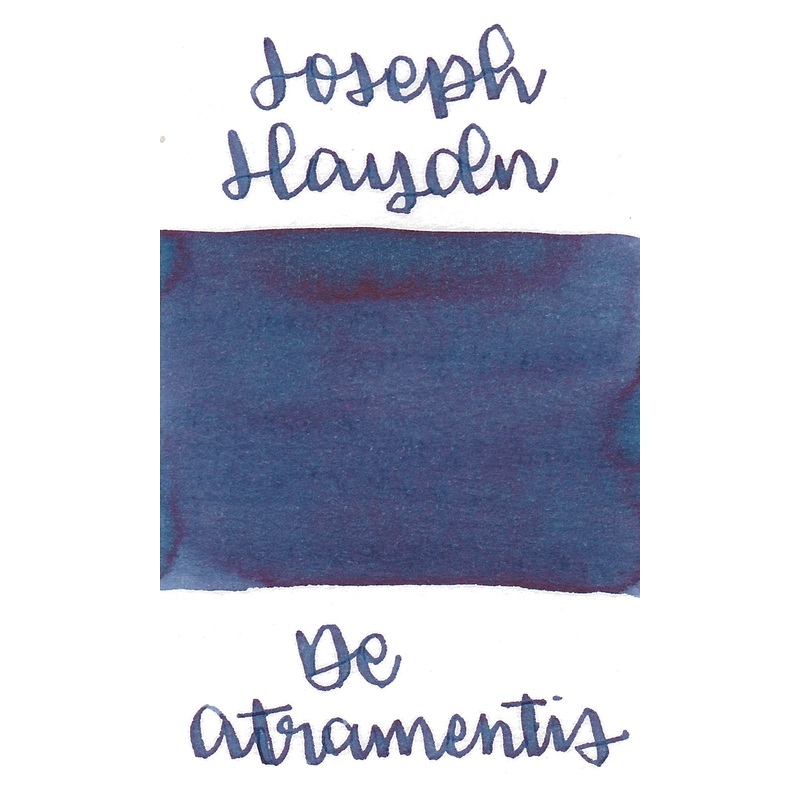 Joseph
Haydn
De
atramentis